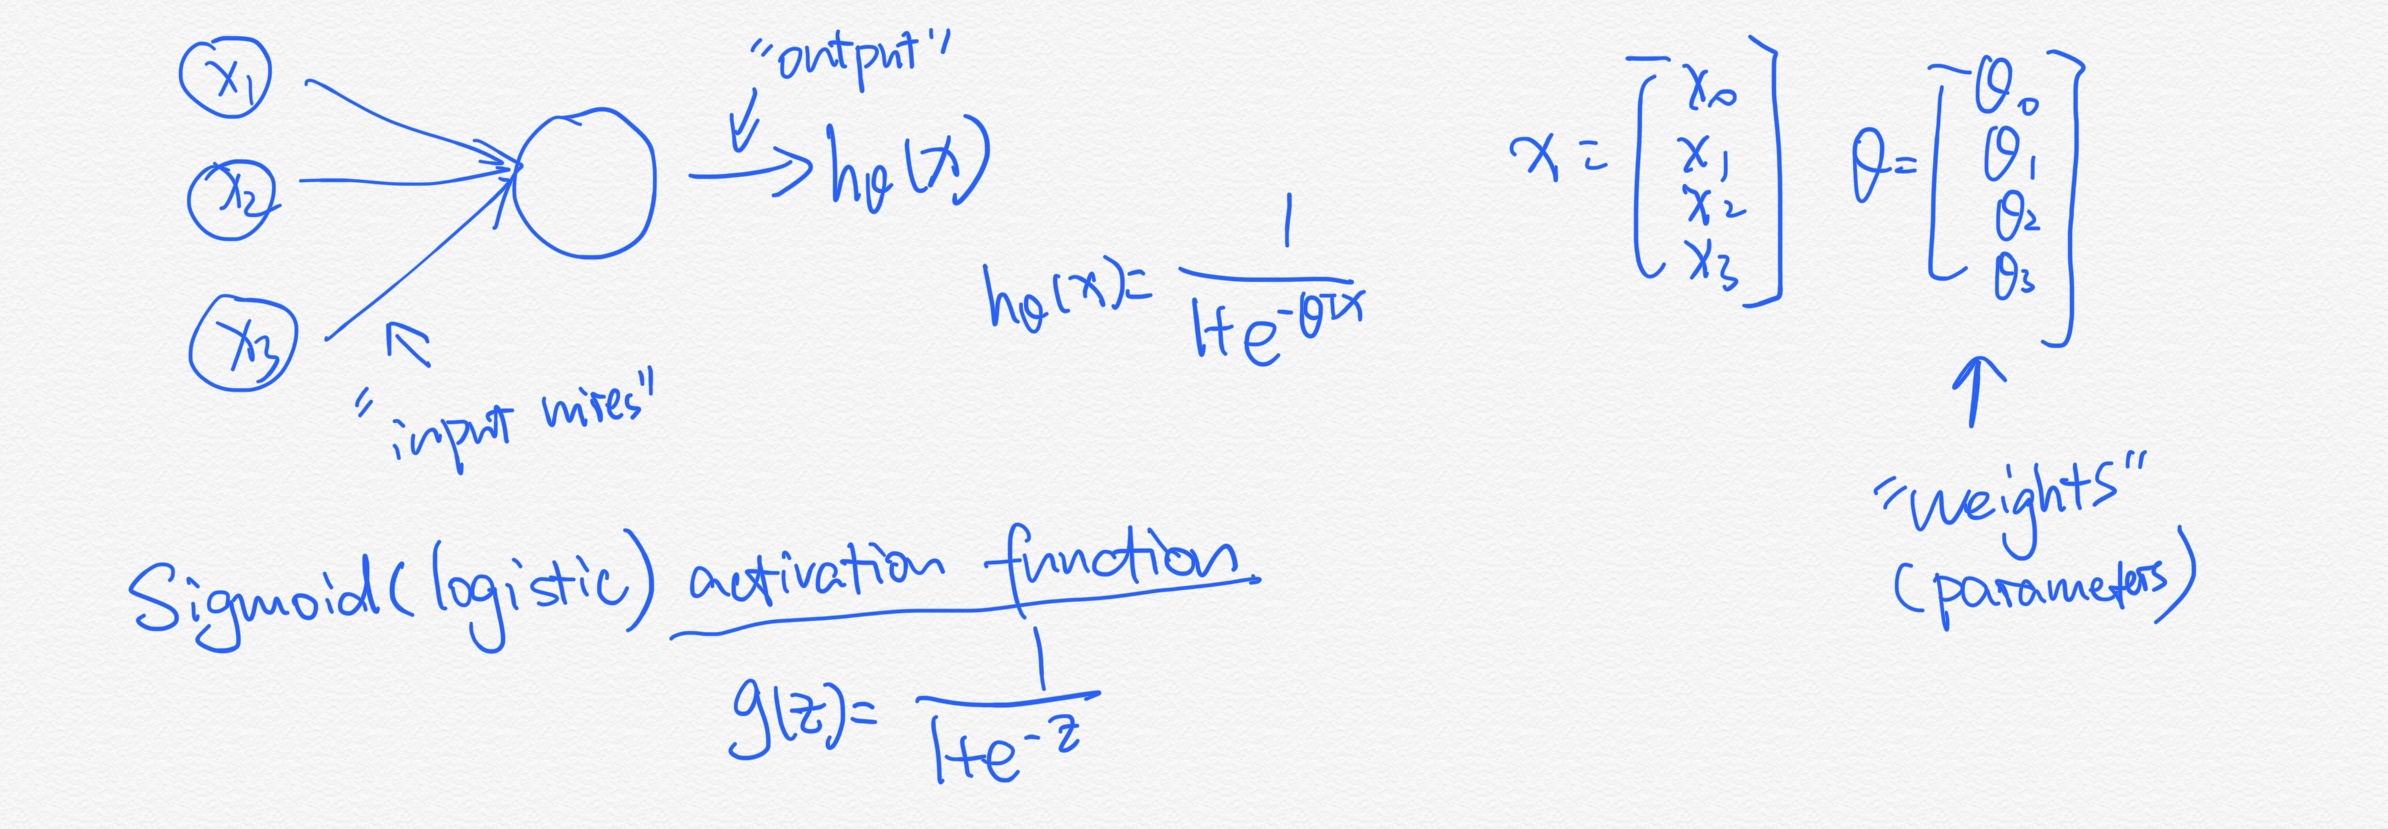 x₁
x₂
x₃
"output"
hθ(x)
"input wires"
hθ(x) = 1 / (1+e^(-θᵀx))
x = [x₀ x₁ x₂ x₃]
θ = [θ₀ θ₁ θ₂ θ₃]
"weights"
(parameters)
Sigmoid (logistic) activation function.
g(z) = 1 / (1+e^(-z))